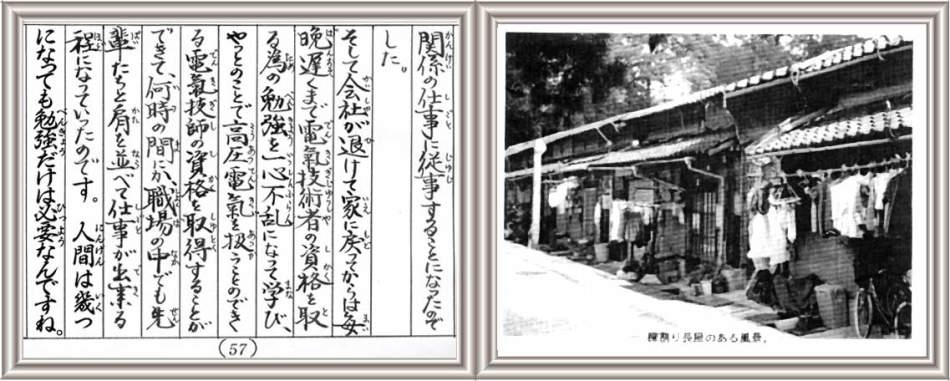 関係の仕事に従事することになったので
した。
そして会社が退けて家に戻ってからは毎
晩遅くまで電氣技術者の資格を取
る為の勉強を一心不乱になって学び、
やっとのことで高圧電氣を扱うことのでき
る電氣技師の資格を取得することが
できて、何時の間にか職場の中でも先
輩たちと肩を並べて仕事が出來る
程になっていったのです。 人間は幾つ
になっても勉強だけは必要なんですね。
(57)
棟割り長屋のある風景。